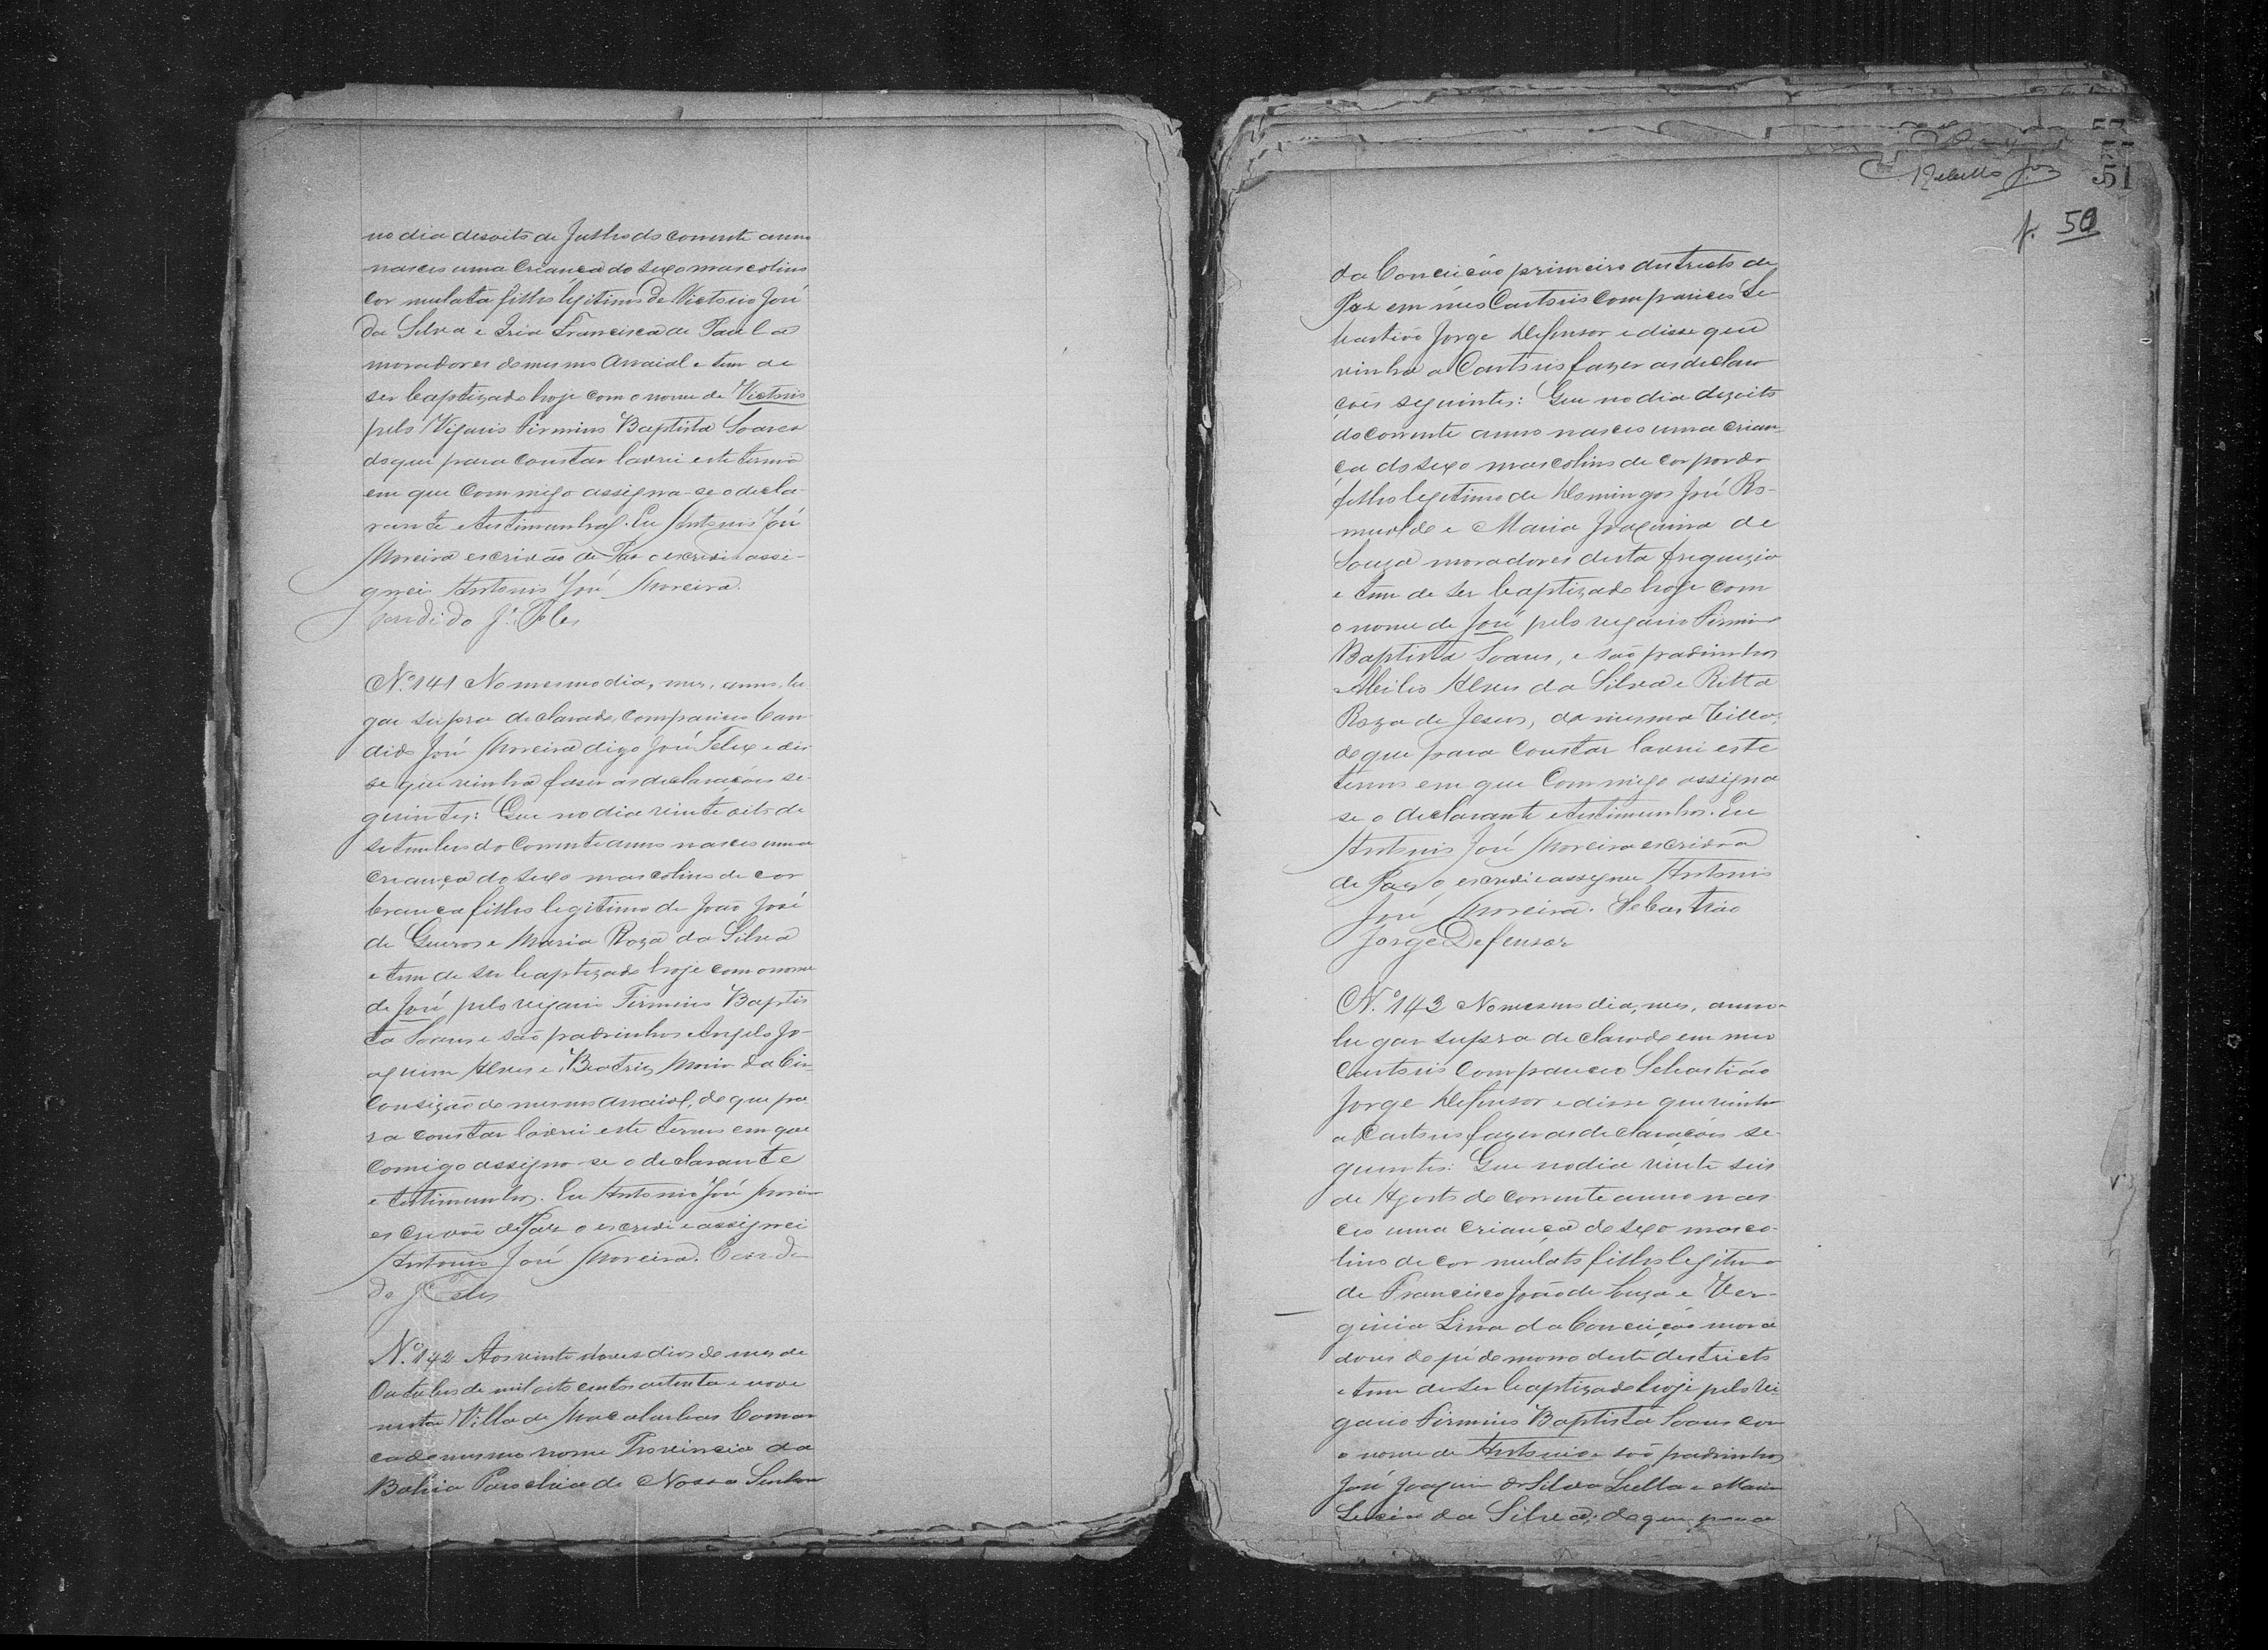 no dia desoito de Julho do corrente anno
nasceo uma criança do sexo mascolino
cor mulata filho legitimo de Victorio José
da Silva e Iria Francisca de Paula
moradores do mesmo Arraial e tem de
ser baptizado hoje com o nome de Victorio
pelo Vigario Firmino Baptista Soares
do que para constar lavrei este termo
em que commigo assigna-se o decla-
rante e testimunhas. Eu Antonio José
Moreira escrivão de Paz o escrevi e assi-
gnei Antonio José Moreira.
J. Teles
Nº 141 No mesmo dia, mes, anno, lu
gar supra declarado, compareceo Can
dido José Moreira digo José Felix e dis
se que vinha faser as declaraçoes se-
guintes: Que no dia vinte oito de
setembro do corrente anno nasceo uma
criança do sexo mascolino de cor
branca filho legitimo de João José
de Queiros e Maria Roza da Silva
e tem de ser baptizado hoje com o nome
de José pelo vigario Firmino Baptis
ta Soares e são padrinhos Angelo Jo-
aquim Alves e Beatriz Maria da
Consição do mesmo arraial, do que pa
ra constar lavrei este termo em que
Comigo assigna-se o declarante
e testimunhas. Eu Antonio José Moreira
escrivão de Paz o escrevi e assignei
Antonio José Moreira. Candi
do J. Teles
Nº 142 Aos vinte nove dias do mes de
Outubro de mil oito centos oitenta e nove
nesta Villa de Macahubas Comar
ca do mesmo nome Provincia da
Bahia Parochia de Nossa Senhora
Rebello Jor
51
f. 50
da Conceição primeiro districto de
Paz em meo Cartorio compareceo Se-
bastião Jorge Defensor e disse que
vinha a Cartorio fazer as declara
ções seguintes: Que no dia dezoito
do corrente anno nasceo uma crian-
ça do sexo mascolino de cor parda
filho legitimo de Domingos José Ro-
mualdo e Maria Joaquina de
Souza moradores desta freguezia
e tem de ser baptizado hoje com
o nome de José pelo vigario Firmino
Baptista Soares, e são padrinhos
Abilio Alves da Silva e Ritta
Roza de Jesus, da mesma Villa,
do que para constar lavrei este
termo em que Commigo assigna
se o declarante e testimunhas. Eu
Antonio José Moreira escrivão
de Paz o escrevi e assignei Antonio
José Moreira. Sebastião
Jorge Defensor
Nº 143 No mesmo dia, mes, anno
lugar supra declarado em meo
Cartorio compareceo Sebastião
Jorge Defensor e disse que vinha
a Cartorio fazer as declaraçoes se-
guintes: Que no dia vinte seis
de Agosto do corrente anno nas
ceo uma criança do sexo masco-
lino de cor mulato filho legitimo
de Francisco João de Souza e Ver-
ginia Lina da Conceição mora
dores do pé do morro deste districto
e tem de ser baptizado hoje pelo Vi
gario Firmino Baptista Soares com
o nome de Antonio e são padrinhos
José Joaquim da Silva Lulla e Maria
Lucia da Silva, do que para